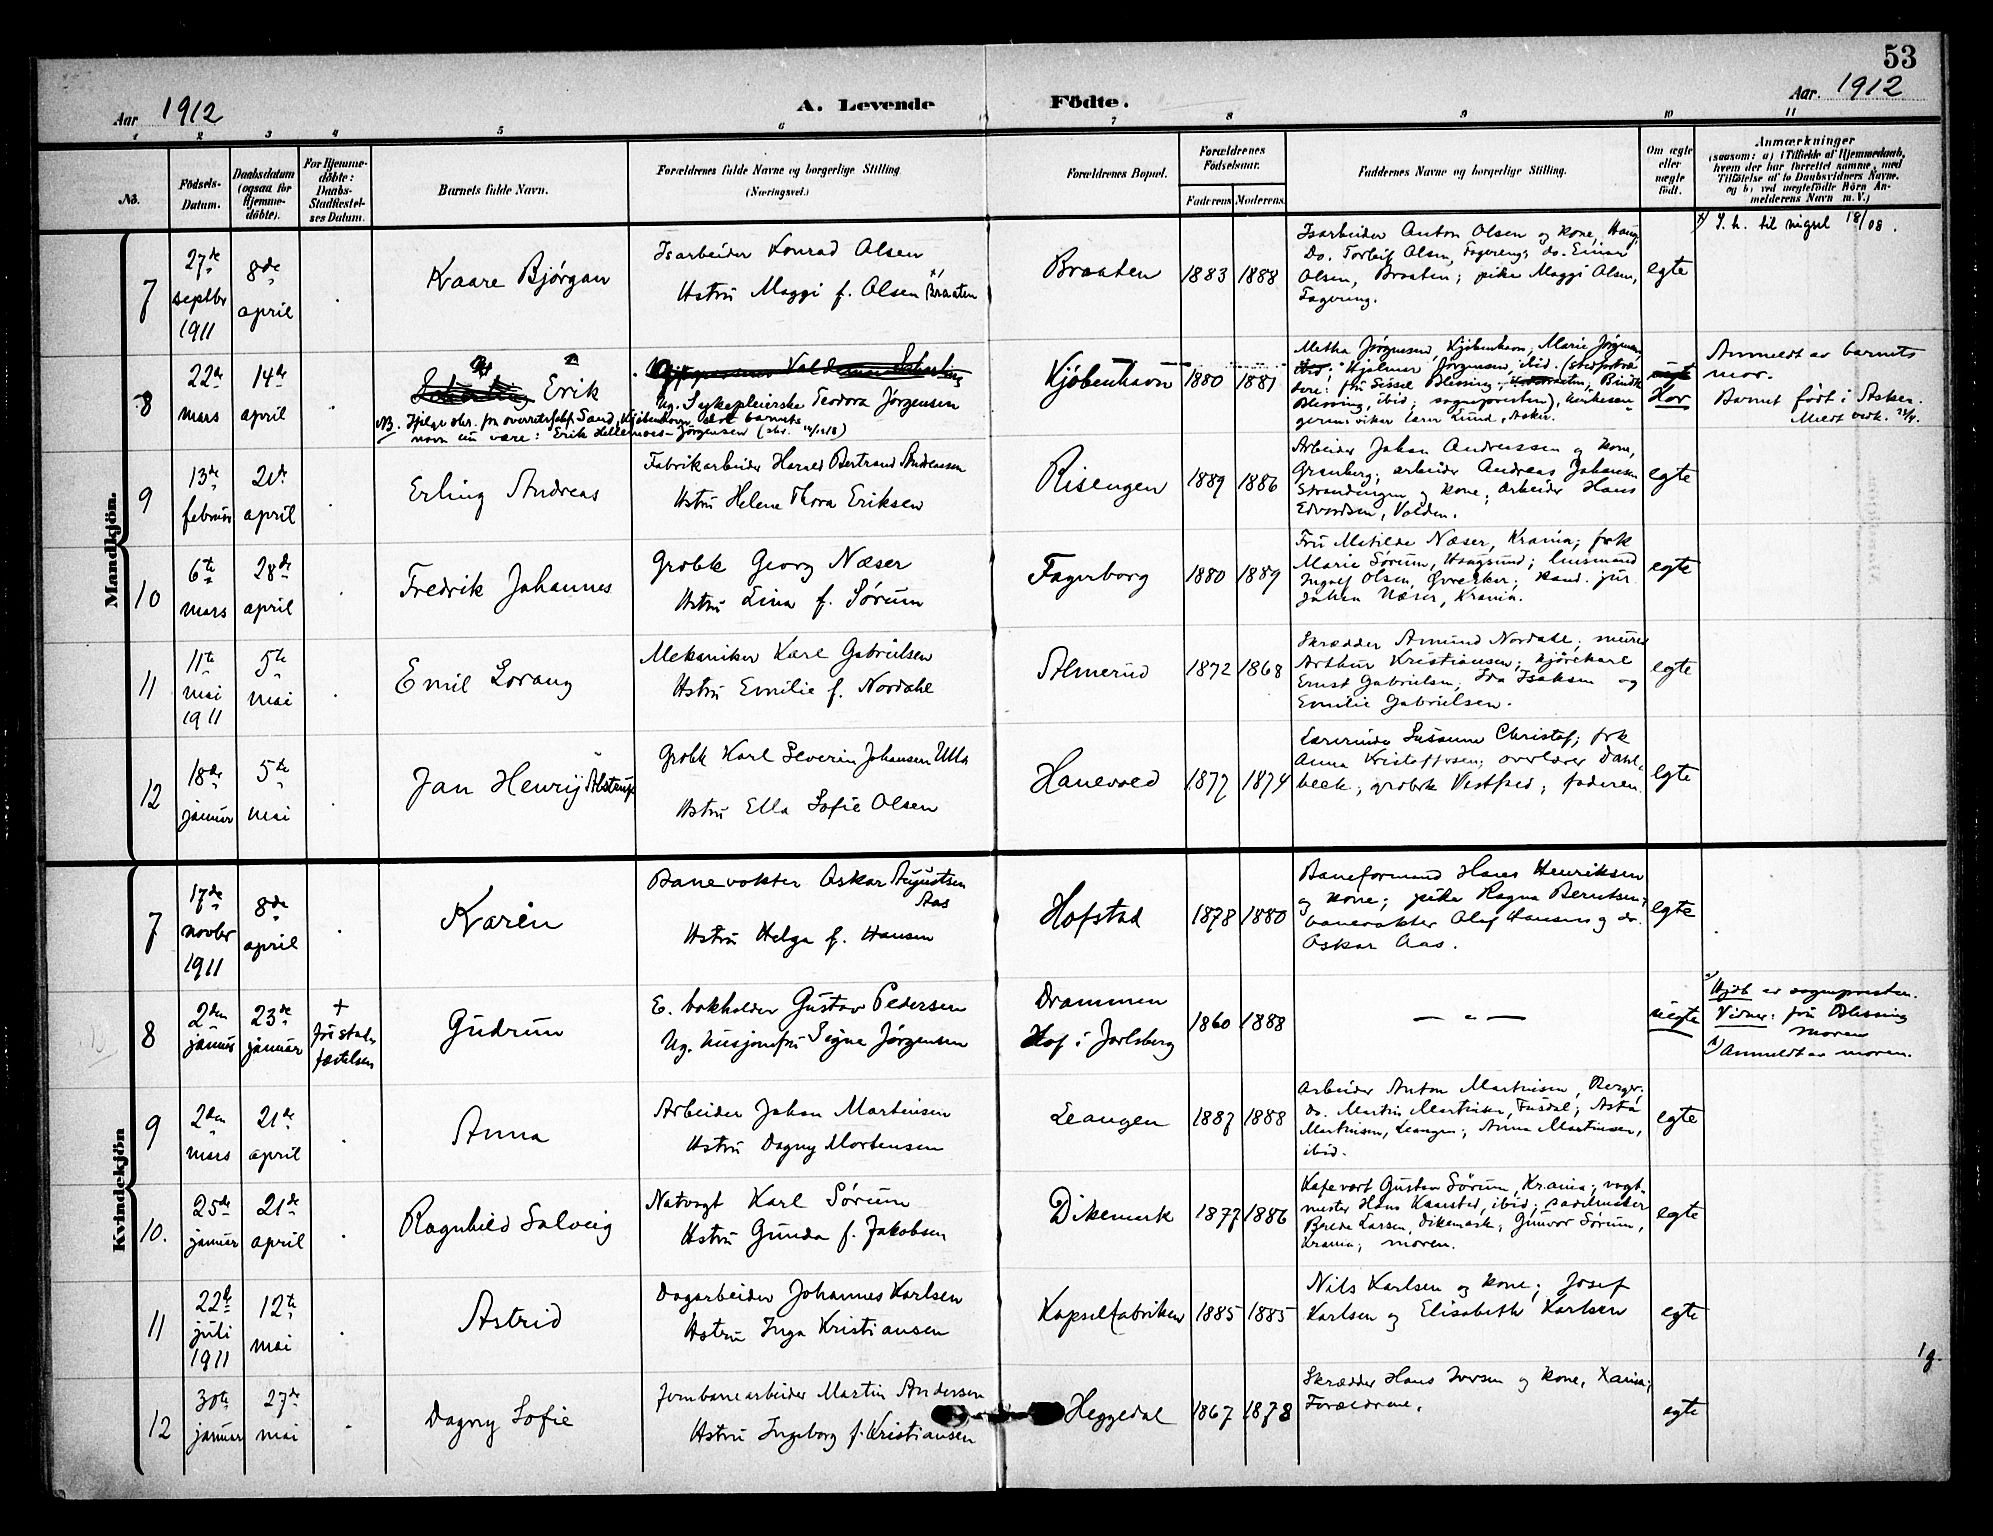 53
Aar 1912
A. Levende Födte.
Aar. 1912
1 2 3 4 5 6 7 8 9 10 11
No.
Födsels-Datum.
Daabsdatum (ogsaa for Hjemme-döbte).
For Hjemme-döbte: Daabs-Stadfæstel-ses Datum.
Barnets fulde Navn.
Forældrenes fulde Navne og borgerlige Stilling
(Næringsvei.)
Forældrenes Bopæl.
Forældrenes Födselsaar.
Faderens Moderens
Faddernes Navne og borgerlige Stilling.
Om ægte eller uægte födt.
Anmærkninger
(saasom: a) i Tilfælde af Hjemmedaab, hvem der har forrettet samme, med Tilföielse af to Daabsvidners Navne. og b) ved uægtefödte Börn An-melderens Navn m. V.)
Mandkjön.
7
27de septbr 1911
8de april
Kaare Bjørgan
Isarbeider Konrad Olsen
Hstru Maggi f. Olsen x) Braaten
Braaten
1883 1888
Isarbeider Anton Olsen og kone, Haug;
Do. Torleif Olsen, Fagereng; do. Einar
Olsen, Braaten; pike Maggi Olsen,
Fagereng.
egte
x) S. h. til nigul 18/08.
8
22de mars
14de april
Erik
Ug. Sykepleierske Teodora Jørgensen
NB. Ifølge skr. fra overretssakf. Sand, Kjøbenhavn skal barnets
navn nu være: Erik Jørgensen
Kjøbenhavn
1880 1881
Metha Jørgensen, Kjøbenhavn; Marie Jørgensen,
Hjalmar Jørgensen, ibid.
fru Sissel Blessing,
Blessing, ibid; sognepresten),
Lund, Asker.
Hor
Anmeldt av barnets
mor.
Barnet født i Asker.
9
13de februar
21de april
Erling Andreas
Fabrikarbeider Harald Bertrand Andreassen
Hstru Helene Thora Eriksen
Risengen
1889 1886
Arbeider Johan Andreassen og kone,
Grønberg; arbeider Andreas Johansen
Strandengen og kone; arbeider Hans
Edvardsen, Volden.
egte
10
6te mars
28de april
Fredrik Johannes
Grosbk Georg Næser
Hstru Lina f. Sørum
Fagerborg
1880 1889
Fru Matilde Næser, Krania; frk
Marie Sørum, Haugsund; lensmand
Ingolf Olsen, Øvre Eker; kand. jur.
Johan Næser, Krania.
egte
11
11te mai 1911
5te mai
Emil Lorang
Mekaniker Karl Gabrielsen
Hstru Emilie f. Nordahl
Almerud
1872 1868
Skrædder Amund Nordahl; murer
Arthur Kristiansen; kjørekarl
Ernst Gabrielsen; Ida Isaksen og
Emilie Gabrielsen.
egte
12
18de januar
5te mai
Jan Henrij Alstrup
Grosbk Karl Severin Johansen Ulla
Hstru Ella Sofie Olsen
Hanevold
1877 1874
Lærerinde Susanne Christof; frk
Anna Kristoffersen; overlærer Dahl,
grosbk Vestfred; faderen.
egte
Kvindekjön
7
17de novbr 1911
8de april
Karen
Banevokter Oskar Augustsen Aas
Hstru Helga f. Hansen
Hofstad
1878 1880
Baneformand Hans Henriksen
og kone; pike Ragna Berntsen;
banevokter Olaf Hansen og do.
Oskar Aas.
egte
8
2den januar
23de januar
+ før stadfæstelsen
Gudrun
E. bokholder Gustav Pedersen
Ug. husjomfru Signe Jørgensen
Drammen
Hof i Jarlsberg
1860 1888
— " —
uegte
x) Hjdb av sognepresten.
Vidner: fru Blessing
moren
x) Anmeldt av moren.
9
2den mars
21de april
Anna
Arbeider Johan Martinsen
Hstru Dagny Mortensen
Leangen
1887 1888
Arbeider Anton Martinsen, Berger;
do. Martin Martinsen, Fusdal; Asta
Martinsen, Leangen; Anna Martinsen,
ibid.
egte
10.
25de januar
21de april
Ragnhild Solveig
Natvagt Karl Sørum
Hstru Gunda f. Jakobsen
Dikemark
1877 1886
Kafevært Gustav Sørum, Krania; vagt-
mester Hans Kaarstad, ibid; sadelmaker
Brede Larsen, Dikemark; Gunvor Sørum,
Krania; moren.
egte
11
22de juli 1911
12te mai
Astrid
Dagarbeider Johannes Karlsen
Hstru Inga Kristiansen
Kapselfabriken
1885 1885
Nils Karlsen og kone; Josef
Karlsen og Elisabeth Karlsen
egte
12
30te januar
27de mai
Dagny Sofie
Jernbanearbeider Martin Andersen
Hstru Ingeborg f. Kristiansen
Heggedal
1867 1878
Skrædder Hans Iversen og kone, Xania;
Forældrene.
egte
1g.